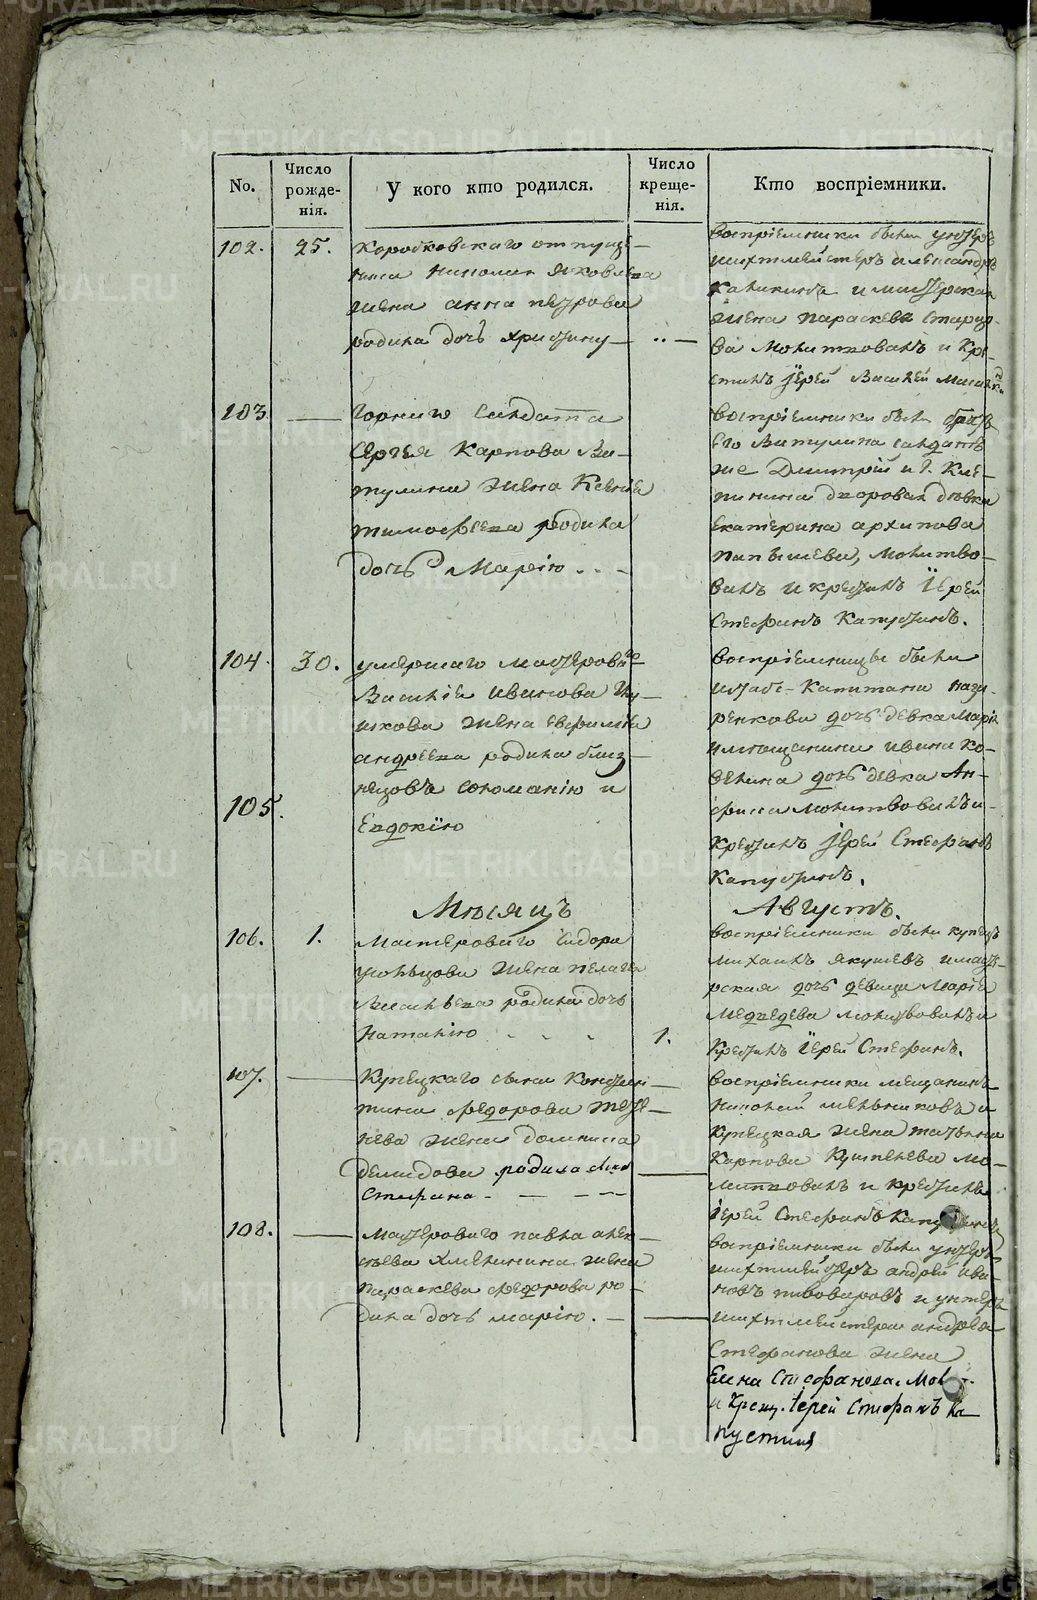 No.
Число рожде-нія.
У кого кто родился.
Число креще-нія.
Кто воспріемники.
102. 25.
Коробковскаго отпуще-
жена анна петрова
родила дочь христину
воспріемники были унтеръ
шихтмейстеръ александръ
и мастерская
жена параскева
ва молитвовалъ и кре-
стилъ іерей Василей
103.
горнаго салдата
Сергея Карпова Ви-
тулина жена Ксения
тимофеева родила
дочь Марію
воспріемники были братъ
его Витулина салдатъ
же Дмитрій и г.
дворовая девка
екатерина архипова
молитво-
валъ и крестилъ Іерей
Стефанъ Капустинъ.
104. 30.
105.
умершаго мастероваго
Василія иванова
жена евфимия
андреева родила близ-
нецовъ соломанію и
Евдокію
воспріемницы были
штабс-капитана наза-
ренкова дочь девка Марія
и мещанина ивана ко-
дочь девка Ан-
фиса молитвовалъ и
крестилъ Іерей Стефанъ
Капустинъ.
Мѣсяцъ Августъ.
106. 1.
Мастероваго Сидора
усольцова жена пелагея
Васильева родила дочь
Наталію
1.
воспріемники были купецъ
михаилъ якушевъ и масте-
рская дочь девица Марія
Медведева молитвовалъ и
крестилъ Іерей Стефанъ.
107.
Купецкаго сына Констан-
тина федорова
жена домнина
Демидова родила сына
Стефана
воспріемники мещанинъ
николай мельниковъ и
купецкая жена татьяна
Карпова мо-
литвовалъ и крестилъ
Іерей Стефанъ
108.
Мастероваго павла алек-
сеева жена
параскева федорова ро-
дила дочь марію.
воспріемники были унтеръ
шихтмейстеръ андрей ива-
новъ пивоваровъ и унтеръ
шихтмейстера андрея
Стефанова жена
Елена Стефанова. Мол.
и крещ. Іерей Стефанъ Ка-
пустинъ
METRIKI.GASO-URAL.RU